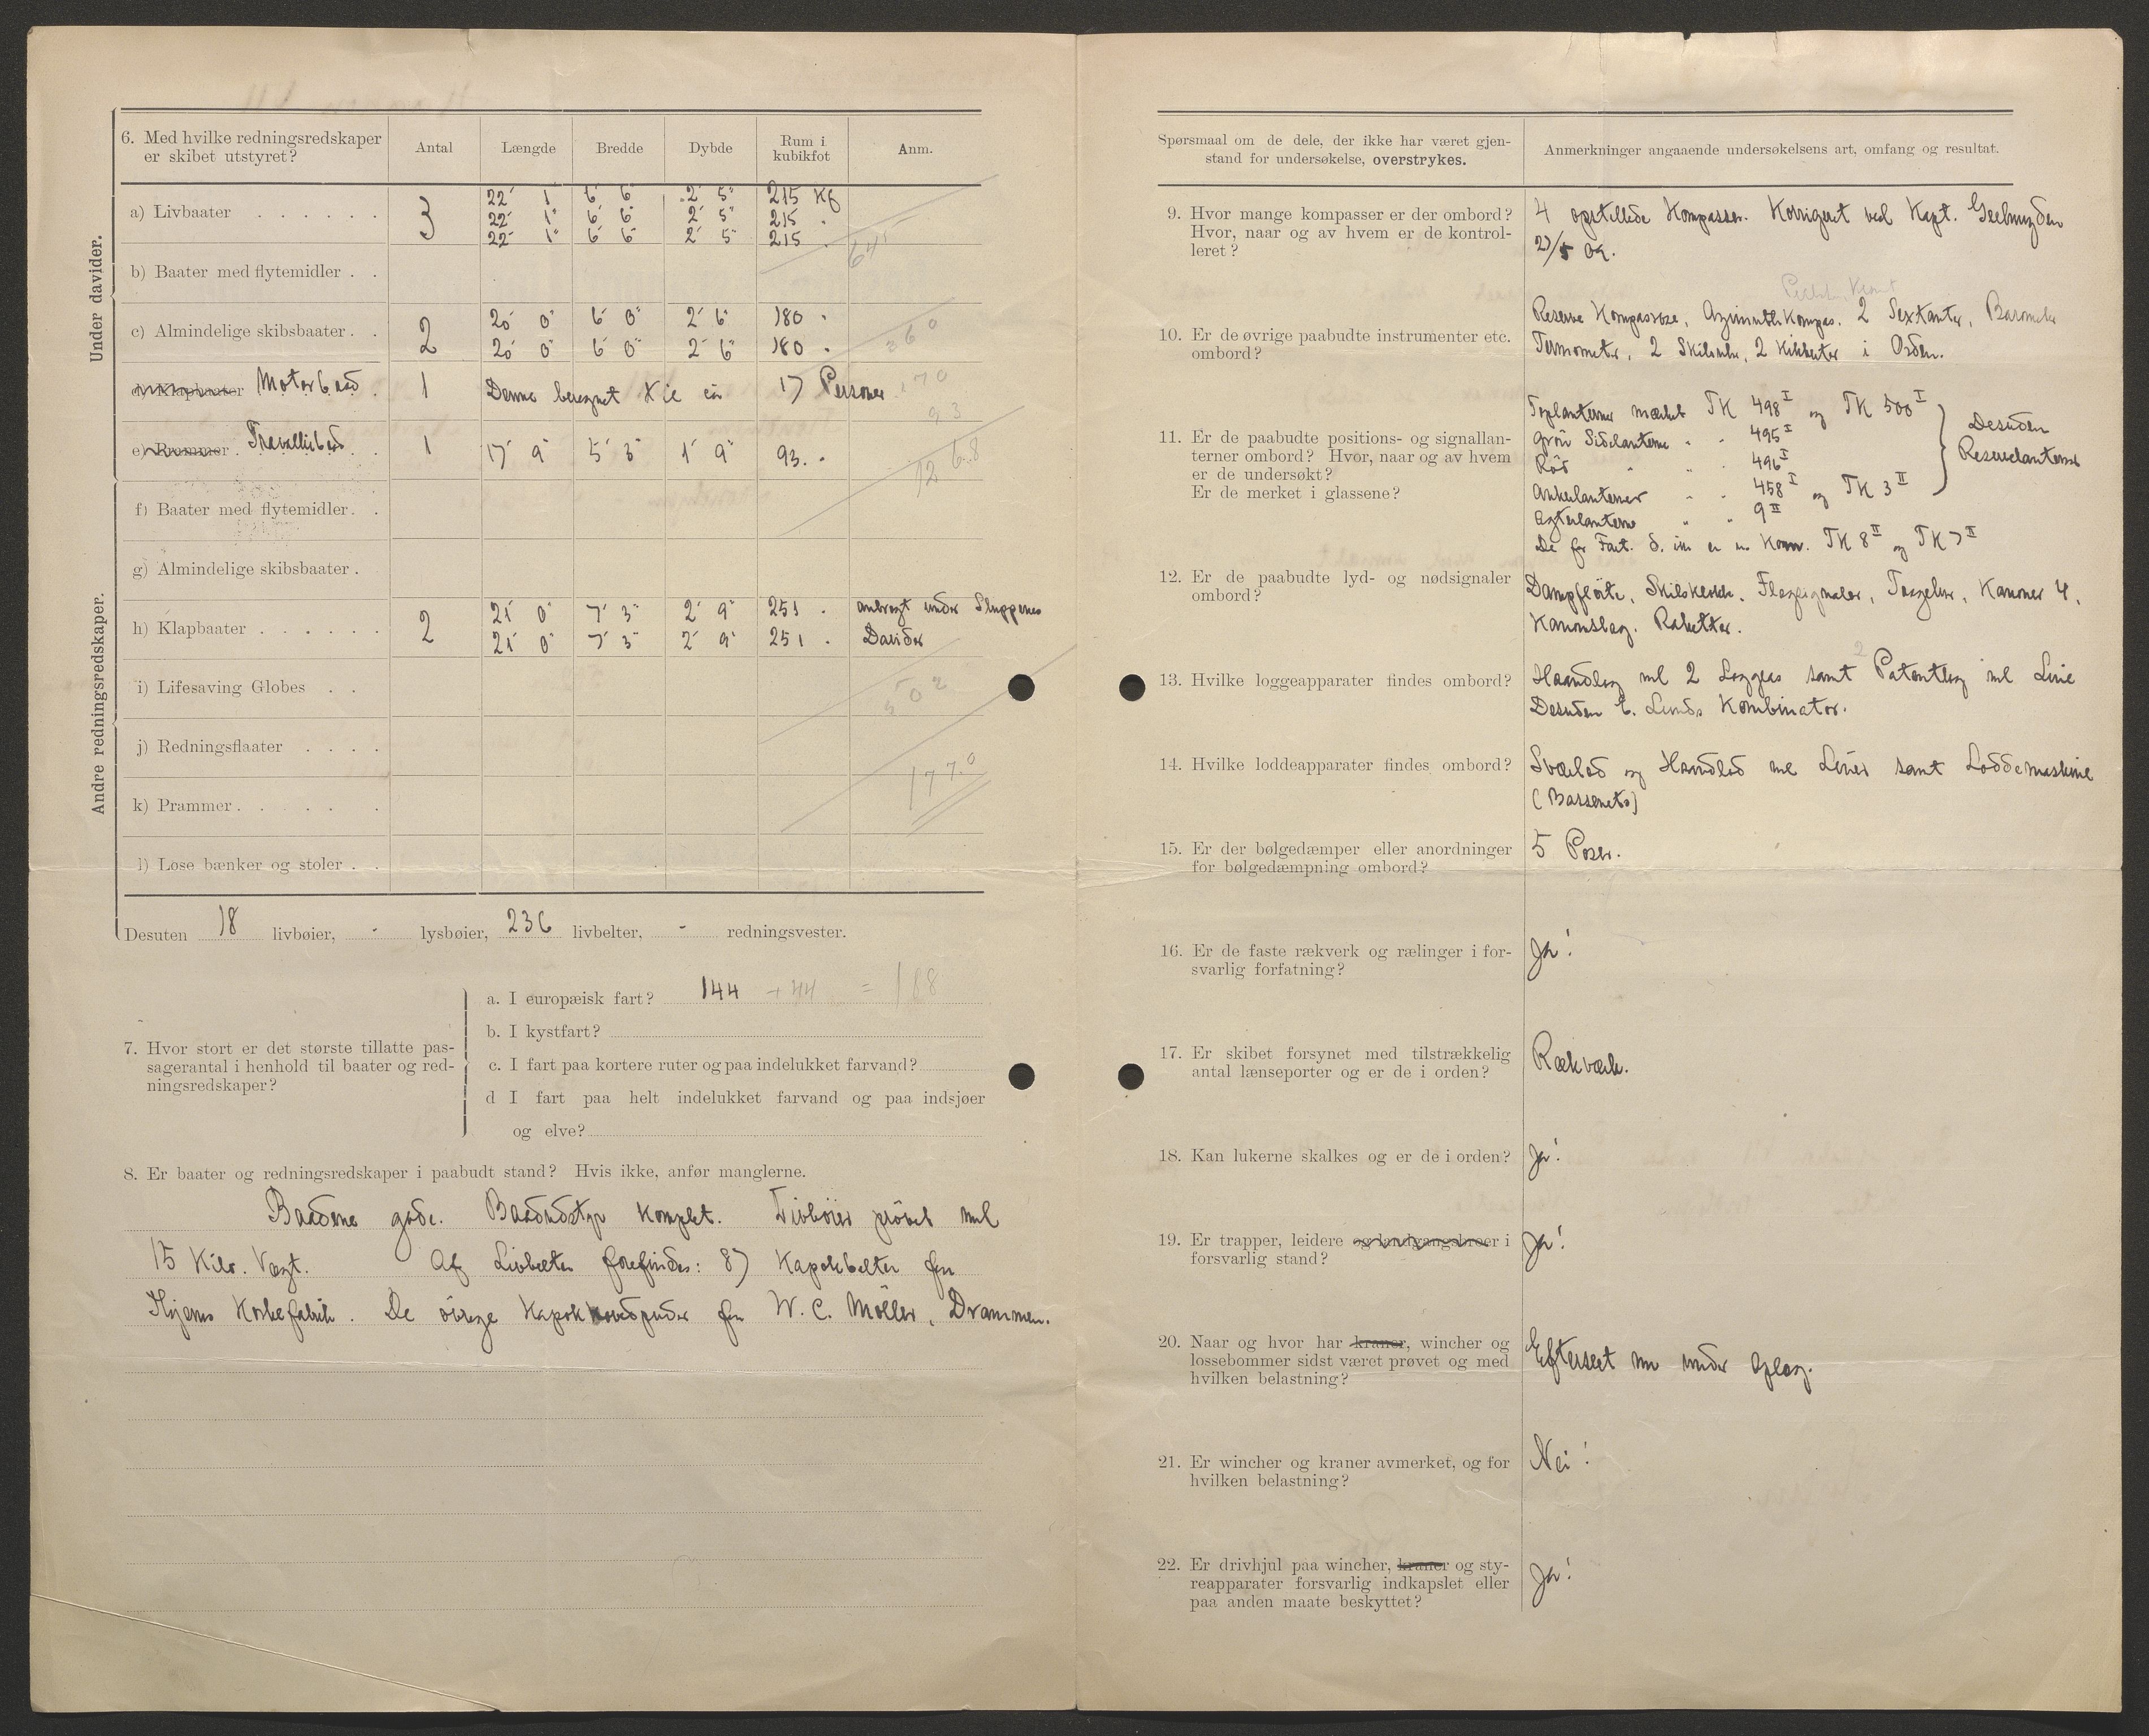 6. Med hvilke redningsredskaper
er skibet utstyret?
Antal
Længde
Bredde
Dybde
Rum i
kubikfot
Anm.
Under davider.
a) Livbaater
3
22' 1" 6' 6" 2' 5" 215 Kf
22' 1" 6' 6" 2' 5" 215 "
22' 1" 6' 6" 2' 5" 215 "
645
b) Baater med flytemidler
c) Almindelige skibsbaater
2
20' 0" 6' 0" 2' 6" 180 "
20' 0" 6' 0" 2' 6" 180 "
360
d) Klapbaater Motorbaad 1 Denne beregnet 17 Personer 170
93
e) Prammer Travallibaad 1 17' 9" 5' 3" 1' 9" 93 "
1268
Andre redningsredskaper.
f) Baater med flytemidler
g) Almindelige skibsbaater
h) Klapbaater
2
21' 0" 7' 3" 2' 9" 251 " anbragt under Sluppenes
21' 0" 7' 3" 2' 9" 251 " Davider
i) Lifesaving Globes
502
j) Redningsflaater
1770
k) Prammer
l) Løse bænker og stoler
Desuten 18 livbøier, - lysbøier, 236 livbelter, - redningsvester.
7. Hvor stort er det største tillatte pas-
sagerantal i henhold til baater og red-
ningsredskaper?
a. I europæisk fart? 144 + 44 = 188
b. I kystfart?
c. I fart paa kortere ruter og paa indelukket farvand?
d I fart paa helt indelukket farvand og paa indsjøer
og elve?
8. Er baater og redningsredskaper i paabudt stand? Hvis ikke, anfør manglerne.
Baadene gode. Baadudstyr komplet. Livböier prövet med
15 Kilo. Vægt. Af Livbelter forefindes: 87 Kapokbelter fra
Korkefabrik. De övrige Kapok hovedpuder fra W. C. Möller, Drammen.
Spørsmaal om de dele, der ikke har været gjen-
stand for undersøkelse, overstrykes.
Anmerkninger angaaende undersøkelsens art, omfang og resultat.
9. Hvor mange kompasser er der ombord?
Hvor, naar og av hvem er de kontrol-
leret?
4 opstillede Kompasser. Korrigeret ved Kapt. Geelmuyden
27/5 09.
10. Er de øvrige paabudte instrumenter etc.
ombord?
Reserve Kompasrose, Azimuth Kompas. 2 Sextanter, Barometer
Termometer, 2 Skibsuhr, 2 Kikkerter i Orden.
11. Er de paabudte positions- og signallan-
terner ombord? Hvor, naar og av hvem
er de undersøkt?
Er de merket i glassene?
Toplanterner mærket TK 498 I og TK 500 I
grön Sidelanterne " " 495 I
Röd " " " 496 I
Ankerlanterner " " 458 I og TK 3 II
Agterlanterne " " 9 II
TK 8 II og TK 7 II
Desuden
Reservelanterner
12. Er de paabudte lyd- og nødsignaler
ombord?
Dampflöite, Skibsklokke, Flagsignaler, Taagelur, Kanoner 4,
Kanonslag. Raketter.
13. Hvilke loggeapparater findes ombord?
Haandlog med 2 Logglas samt 2 Patentlog med Line
Desuden E. Lunds Kombinator.
14. Hvilke loddeapparater findes ombord?
Sværlod og Haandlod med Liner samt Loddemaskine
(Bassenets)
15. Er der bølgedæmper eller anordninger
for bølgedæmpning ombord?
5 Poser.
16. Er de faste rækverk og rælinger i for-
svarlig forfatning?
Ja!
17. Er skibet forsynet med tilstrækkelig
antal lænseporter og er de i orden?
Rækværk.
18. Kan lukerne skalkes og er de i orden?
Ja!
19. Er trapper, leidere og landgangsbroer i
forsvarlig stand?
Ja!
20. Naar og hvor har kraner, wincher og
lossebommer sidst været prøvet og med
hvilken belastning?
Efterseet nu under Oplag.
21. Er wincher og kraner avmerket, og for
hvilken belastning?
Nei!
22. Er drivhjul paa wincher, kraner og sty-
reapparater forsvarlig indkapslet eller
paa anden maate beskyttet?
Ja!